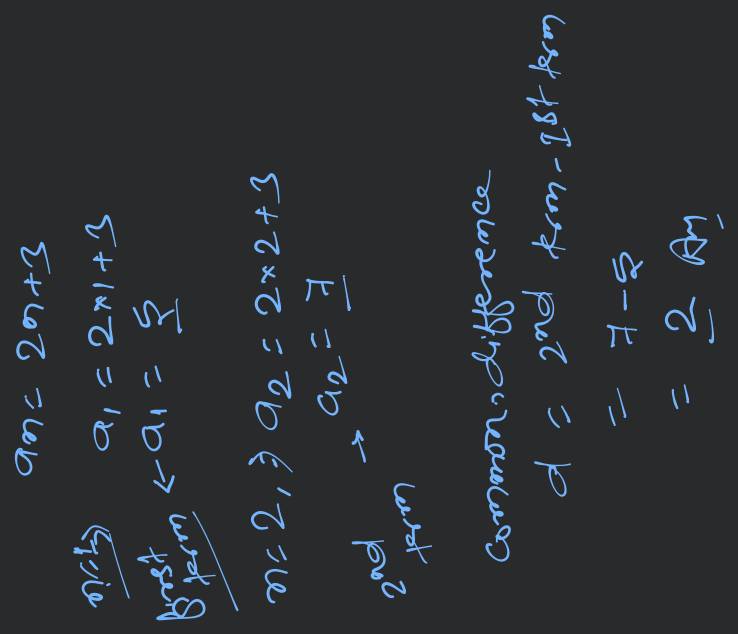 an = 2n+3
n=1, a1 = 2×1+3
first term → a1 = 5
n=2, a2 = 2×2+3
2nd term → a2 = 7
Common difference
d = 2nd term - 1st term
= 7-5
= 2 Ans